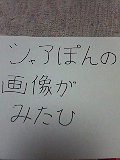 ジャアぽんの
画像が
みたひ